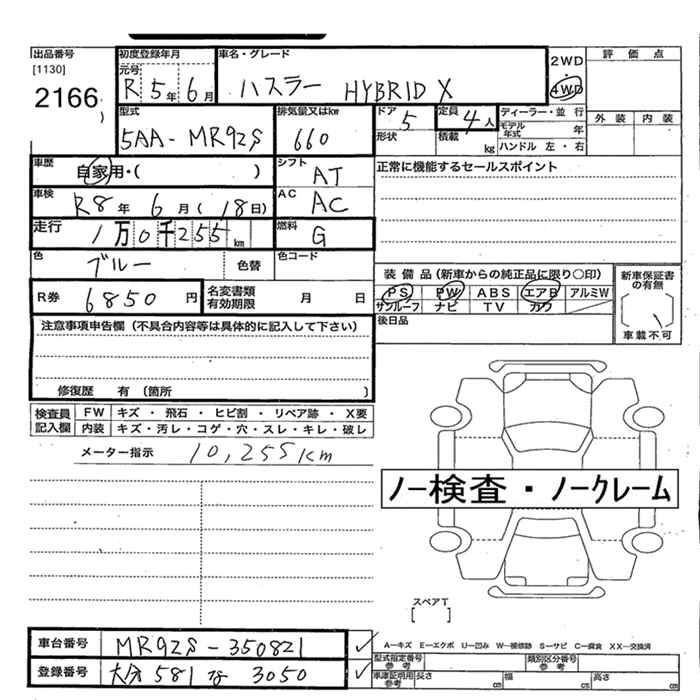 出品番号
[1130]
2166
初度登録年月
元号
R 5年 6月
車名・グレード
ハスラー HYBRID X
2WD
・
4WD
評価点
外装 内装
型式
5AA-MR92S
排気量又はkw
660
ドア
5
形状
定員
4人
積載
kg
ディーラー・並行
モデル年式 年
ハンドル 左・右
車歴
自家用・( )
シフト
AT
正常に機能するセールスポイント
車検
R8年 6月(18日)
AC
AC
走行
1万0千255km
燃料
G
色
ブルー
色替
色コード
装備品(新車からの純正品に限り○印)
PS PW ABS エアB アルミW
サンルーフ ナビ TV カワ
後日品
新車保証書の有無
[ ]
車載不可
R券 6850円
名変書類有効期限 月 日
注意事項申告欄(不具合内容等は具体的に記入して下さい)
修復歴 有(箇所 )
検査員記入欄
FW キズ・飛石・ヒビ割・リペア跡・X要
内装 キズ・汚レ・コゲ・穴・スレ・キレ・破レ
メーター指示 10,255km
ノー検査・ノークレーム
スペアT
[ ]
車台番号 MR92S-350821
登録番号 大分 581 な 3050
A-キズ E-エクボ U-凹み W-補修跡 S-サビ C-腐食 XX-交換済
型式指定番号参考
類別区分番号参考
車庫証明用参考 長さ cm 幅 cm 高さ cm